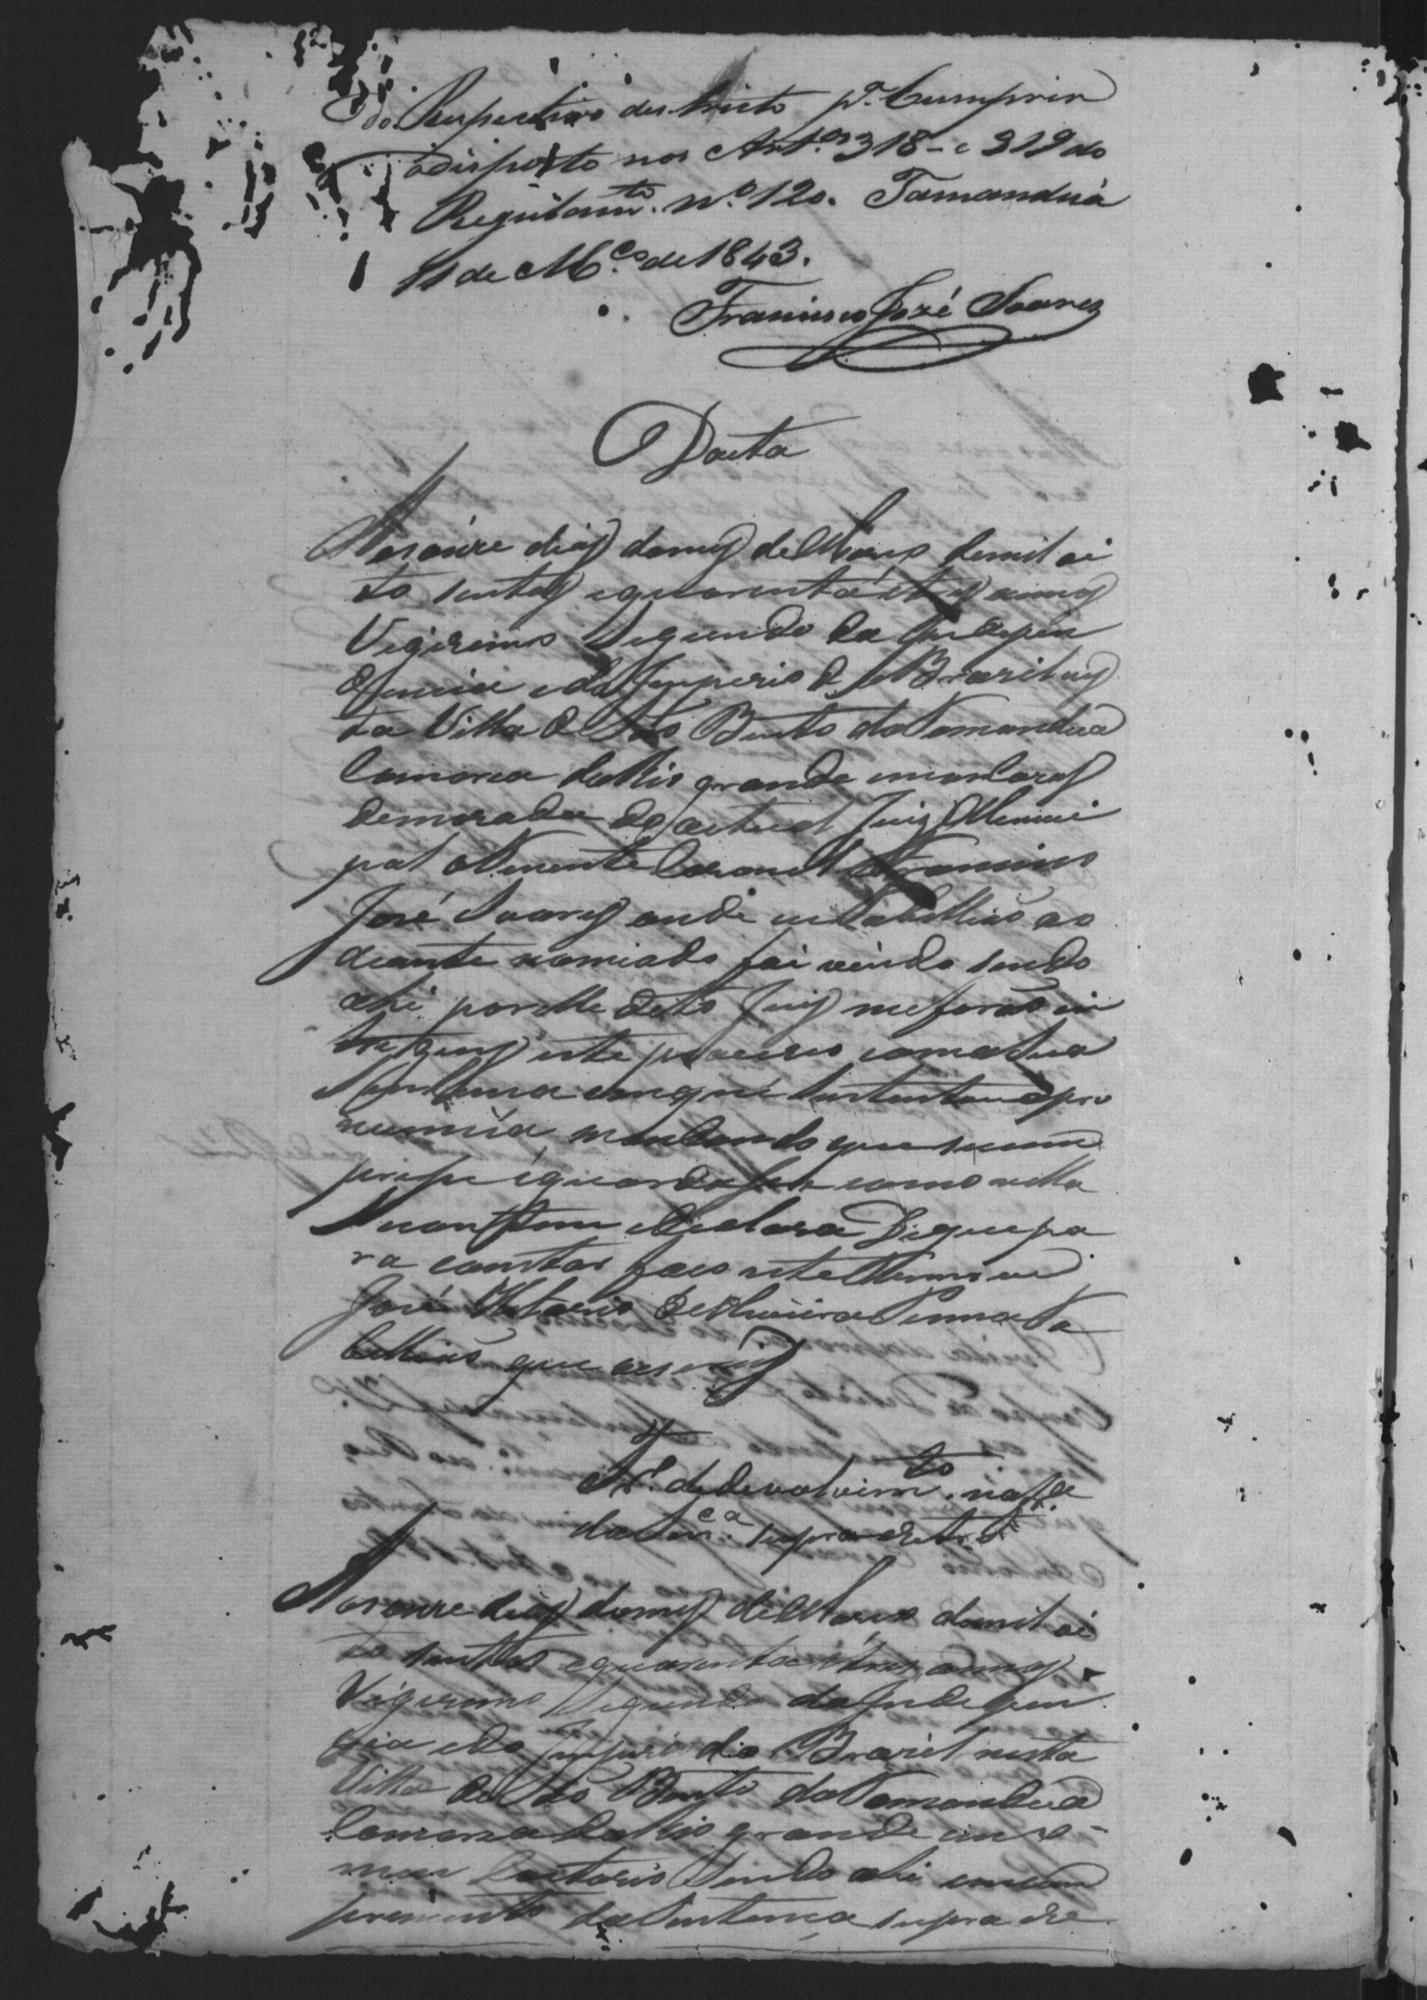 do Respectivo destricto p.ª Cumprir
odisposto nos Art.os 318 – e 319 do
Regulam.to n.º 120. Tamanduá
11 de M.ço de 1843.
Francisco José Soares
Data
Aos onze dias do mes de Março de mil oi
to sentos e quarenta e tres annos
Vigesimo Segundo da Indepen
dencia e do Imperio do Brazil nes
ta Villa de São Bento do Tamanduá
Comarca do Rio grande em as Cazas
de morada do actual Juiz Munici
pal o Tenente Coronel Francisco
José Soares onde eu Tabelliaõ ao
diante nomiado fui vindo sendo
ahi por elle dito Juis me foraõ en
tregues este processo com a sua
Sentença em que sustentou a pro
nuncia mandando que se cum
prise e guardase como nella
se contem e declara De que pa
ra constar faço este termo eu
José Antonio de Oliveira Penna Ta
belliaõ que escrevy
T.º de devolvim.to na f.e
da Sen.ca supra
Aos onze dias do mes de Março de mil oi
to sentos e quarenta e tres annos
Vigesimo Segundo da Indepen
cia e do Imperio do Brazil nesta
Villa de São Bento do Tamanduá
Comarca do Rio grande em o
meu Cartorio Sendo ahi em cum
primento da Sentença supra de